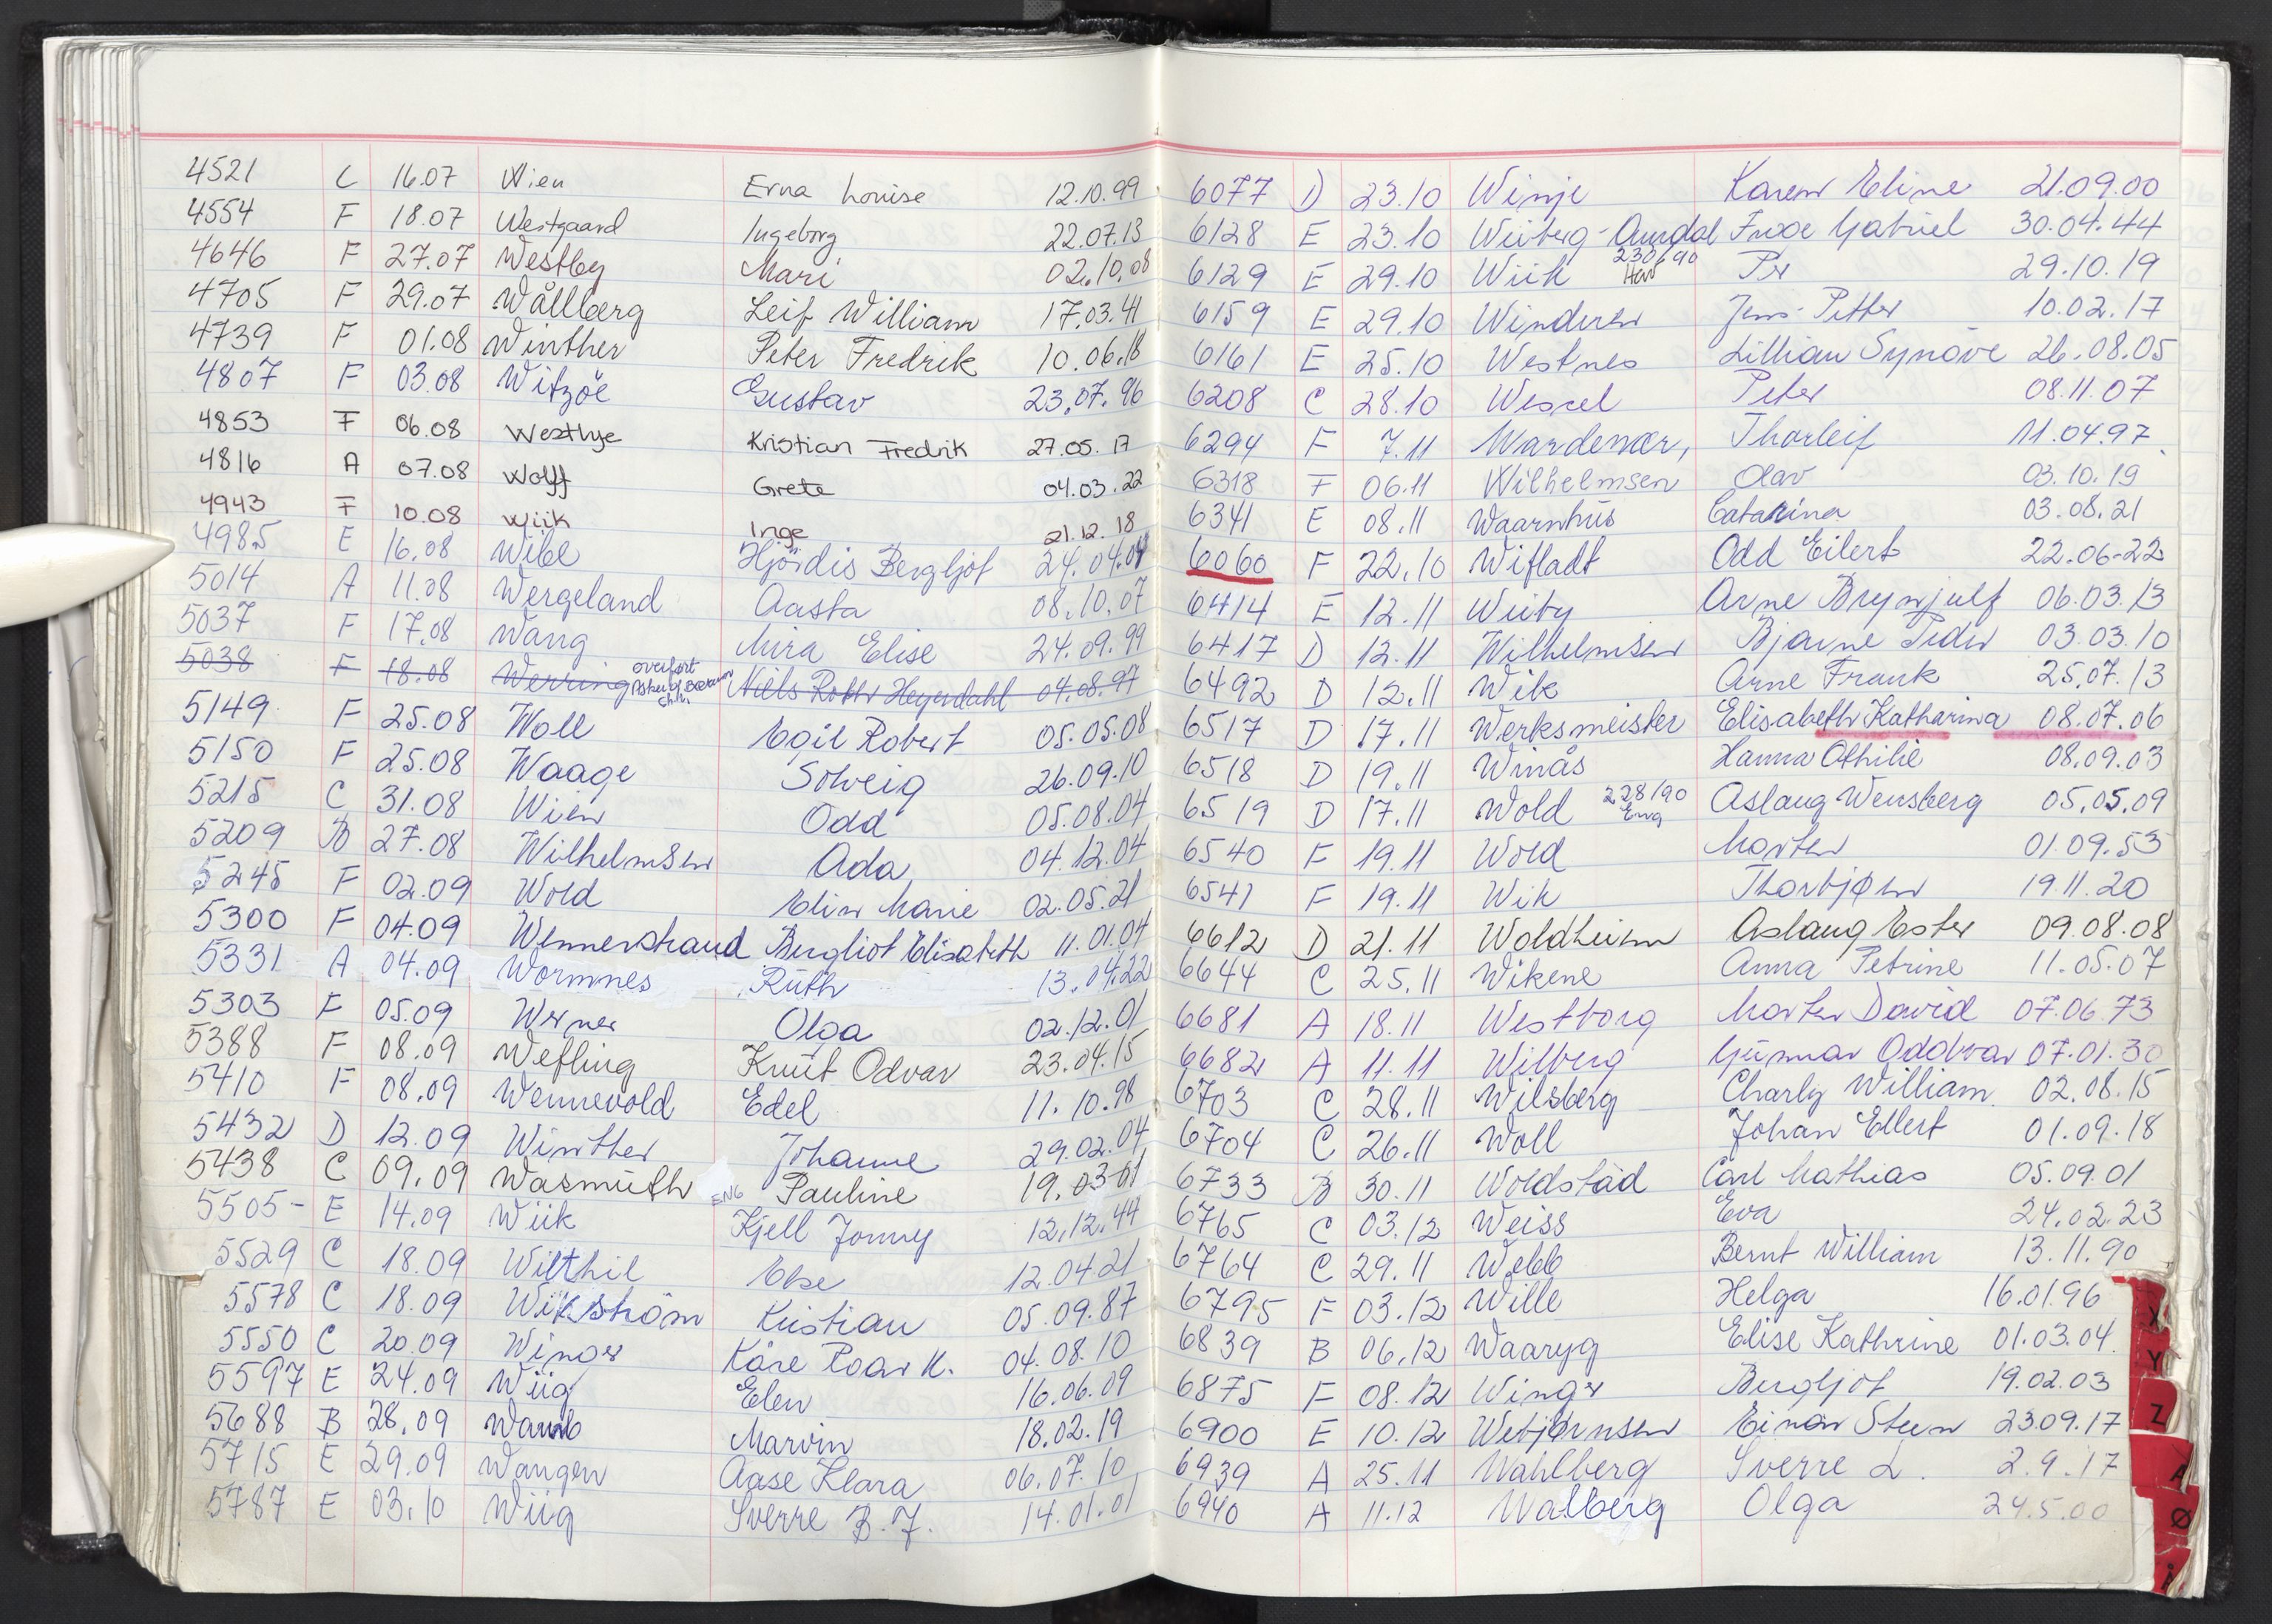 4521 C 16.07 Wien Erna Louise 12.10.99
4554 F 18.07 Westgaard Ingeborg 22.07.13
4646 F 27.07 Westby Mari 02.10.08
4705 F 29.07 Wållberg Leif William 17.03.41
4739 F 01.08 Winther Peter Fredrik 10.06.18
4807 F 03.08 Witzöe Gustav 23.07.96
4853 F 06.08 Westbye Kristian Fredrik 27.05.17
4816 A 07.08 Wolff Grete 04.03.22
4943 F 10.08 Wiik Inge 21.12.18
4985 E 16.08 Wibe Hjördis Bergljot 24.04.04
5014 A 11.08 Wergeland Aasta 08.10.07
5037 F 17.08 Wang Mira Elise 24.09.99
5038 F 18.08 Werring overført Niels Heyerdahl 04.08.97
5149 F 25.08 Woll Egil Robert 05.05.08
5150 F 25.08 Waage Solveig 26.09.10
5215 C 31.08 Wien Odd 05.08.04
5209 B 27.08 Wilhelmsen Ada 04.12.04
5245 F 02.09 Wold Elin Marie 02.05.21
5300 F 04.09 Wennerstrand Bergliot Elisabeth 11.01.04
5331 A 04.09 Wormnes Ruth 13.04.22
5303 F 05.09 Werner Olga 02.12.01
5388 F 08.09 Wefling Knut Odvar 23.04.15
5410 F 08.09 Wennevold Edel 11.10.98
5432 D 12.09 Winther Johanne 29.02.04
5438 C 09.09 Wasmuth Pauline 19.03.01
5505- E 14.09 Wiik ENG Kjell Jonny 12.12.44
5529 C 18.09 Wilthil Else 12.04.21
5578 C 18.09 Wikström Kristian 05.09.87
5550 C 20.09 Winger Kåre Roar K. 04.08.10
5597 E 24.09 Wiig Elen 16.06.09
5688 B 28.09 Marvin 18.02.19
5715 E 29.09 Wangen Aase Klara 06.07.10
5787 E 03.10 Wiig Sverre B.J. 14.01.01
6077 D 23.10 Winje Karen Eline 21.09.00
6128 E 23.10 Wiiberg-Aurdal Gabriel 30.04.44
6129 E 29.10 Wiik 230690 Per 29.10.19
6159 E 29.10 Winderen Jens-Petter 10.02.17
6161 E 25.10 Westnes Lillian Synøve 26.08.05
6208 C 28.10 Wessel Peter 08.11.07
6294 F 7.11 Wardenær, Thorleif 11.04.97
6318 F 06.11 Wilhelmsen Olav 03.10.19
6341 E 08.11 Waarnhus Catarina 03.08.21
6060 F 22.10 Wifladt Odd Eilert 22.06-22
6414 E 12.11 Wiiby Arne Brynjulf 06.03.13
6417 D 12.11 Wilhelmsen Bjarne Peder 03.03.10
6492 D 12.11 Wik Arne Frank 25.07.13
6517 D 17.11 Werksmeister Elisabeth Katharina 08.07.06
6518 D 19.11 Winås Hanna Othilie 08.09.03
6519 D 17.11 Wold 228/90 Eng Aslaug Wensberg 05.05.09
6540 F 19.11 Wold Morten 01.09.53
6541 F 19.11 Wik Thorbjørn 19.11.20
6612 D 21.11 Woldheim Aslaug Ester 09.08.08
6644 C 25.11 Wikene Anna Petrine 11.05.07
6681 A 18.11 Westborg Morten David 07.06.73
6682 A 11.11 Wilberg Gunnar Oddvar 07.01.30
6703 C 28.11 Wilsberg Charly William 02.08.15
6704 C 26.11 Woll Johan Ellert 01.09.18
6733 B 30.11 Woldstad Carl Mathias 05.09.01
6765 C 03.12 Weiss Eva 24.02.23
6764 C 29.11 Webb Bernt William 13.11.90
6795 F 03.12 Wille Helga 16.01.96
6839 B 06.12 Waaryg Elise Kathrine 01.03.04
6875 F 08.12 Winger Bergljot 19.02.03
6900 E 10.12 Webjørnsen Einar Steen 23.09.17
6939 A 25.11 Wahlberg Sverre L. 2.9.17
6940 A 11.12 Walberg Olga 24.5.00
X
Y
Z
Æ
Ø
Å